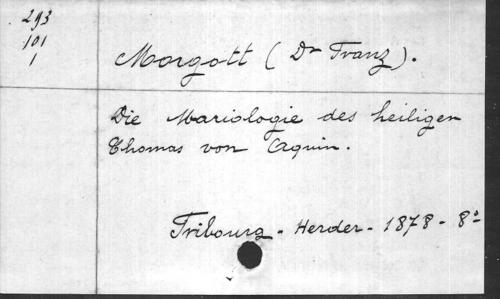 293
101
1
Morgott (Dr Franz).
Die Mariologie des heiligen
Thomas von Aquin.
Fribourg - Herder - 1878 - 8°